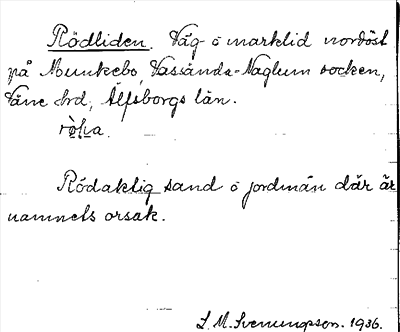 Rödliden. Väg o marklid nordöst
på Munkebo, Vassända-Naglum socken,
Väne hrd, Älfsborgs län.
Rödaktig sand o jordmån där är
namnets orsak.
S. M. Svenungsson. 1936.